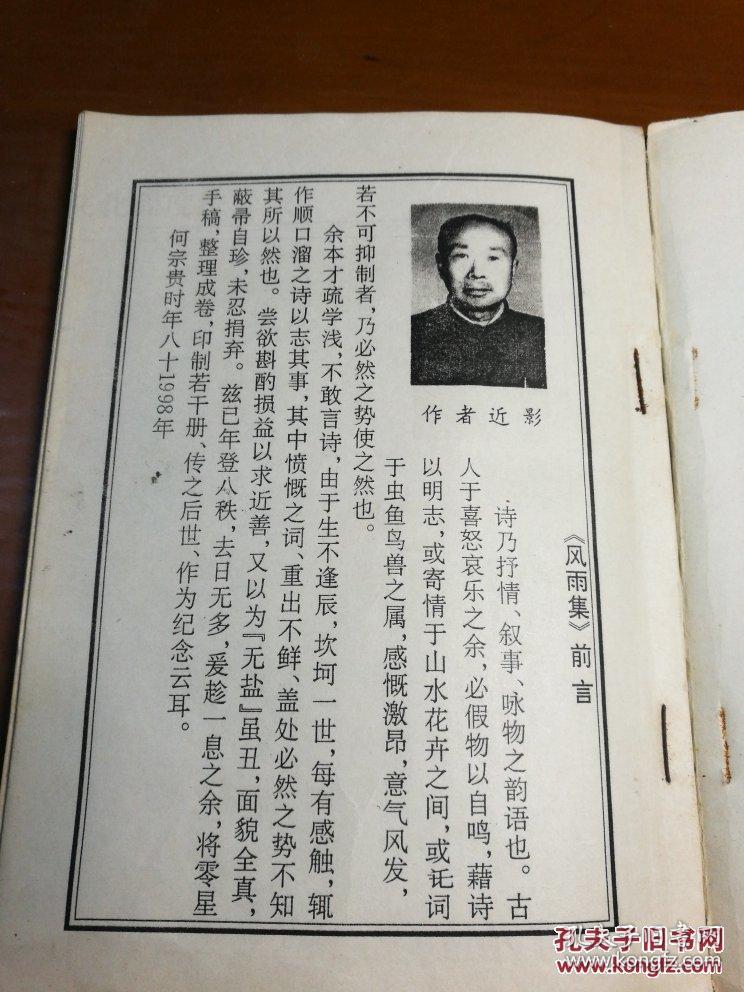 《风雨集》前言
诗乃抒情、叙事、咏物之韵语也。古
人于喜怒哀乐之余,必假物以自鸣,藉诗
以明志,或寄情于山水花卉之间,或讬词
于虫鱼鸟兽之属,感慨激昂,意气风发,
若不可抑制者,乃必然之势使之然也。
余本才疏学浅,不敢言诗,由于生不逢辰,坎坷一世,每有感触,辄
作顺口溜之诗以志其事,其中愤慨之词、重出不鲜、盖处必然之势不知
其所以然也。尝欲斟酌损益以求近善,又以为『无盐』虽丑,面貌全真,
蔽帚自珍,未忍捐弃。兹已年登八秩,去日无多,爰趁一息之余,将零星
手稿,整理成卷,印制若干册、传之后世、作为纪念云耳。
何宗贵时年八十1998年
作者近影
孔夫子旧书网
www.kongfz.com